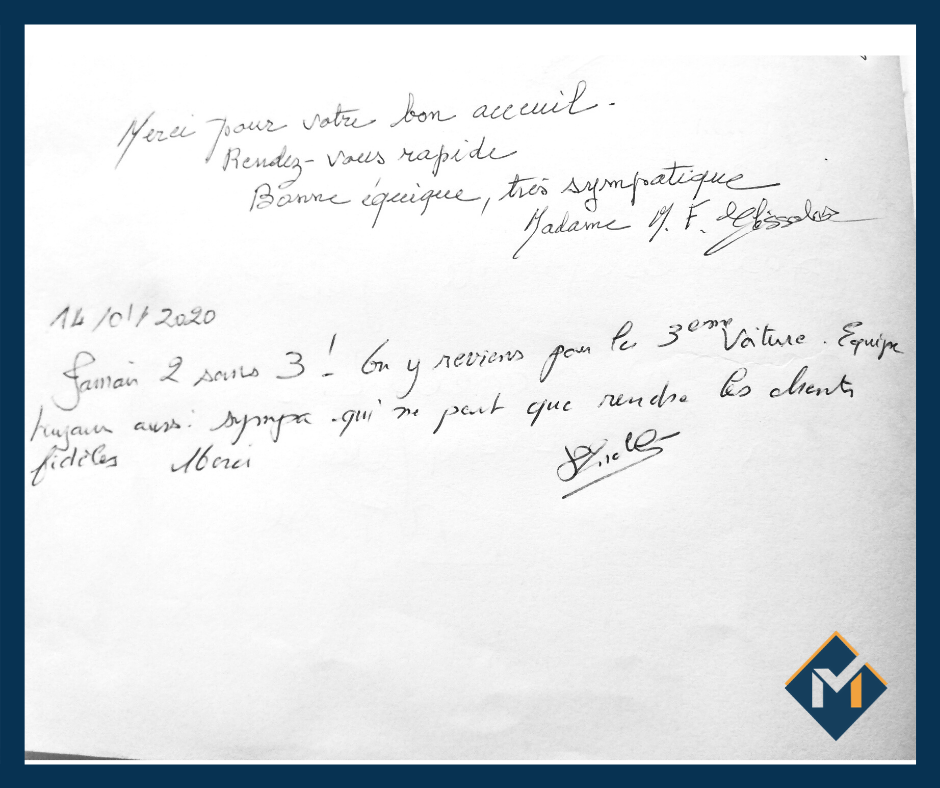 Merci pour votre bon accueil.
Rendez-vous rapide
Bonne équique, très sympatique
Madame M. F.
14/01/2020
Jamais 2 sans 3! On y reviens pour la 3eme Voiture. Equipe
toujours aussi sympa qui ne peut que rendre les clients
fidèles Merci
M